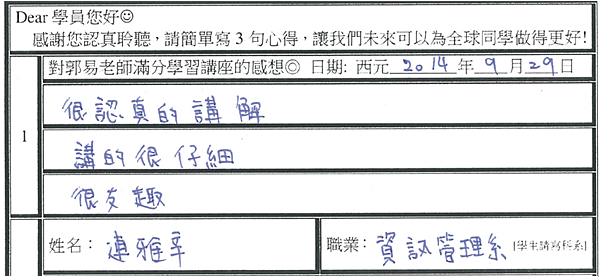 Dear 學員您好☺
感謝您認真聆聽，請簡單寫 3 句心得，讓我們未來可以為全球同學做得更好!
對郭易老師滿分學習講座的感想◎ 日期: 西元 2014 年 9 月 29 日
很認真的講解
1
講的很仔細
很友趣
姓名： 連雅辛 職業： 資訊管理系 [學生請寫科系]